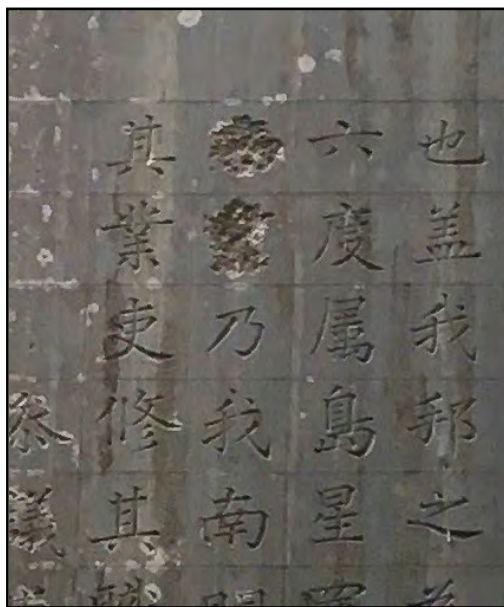 也盖我邦之
六度属島星
乃我南
其業吏修其
参議